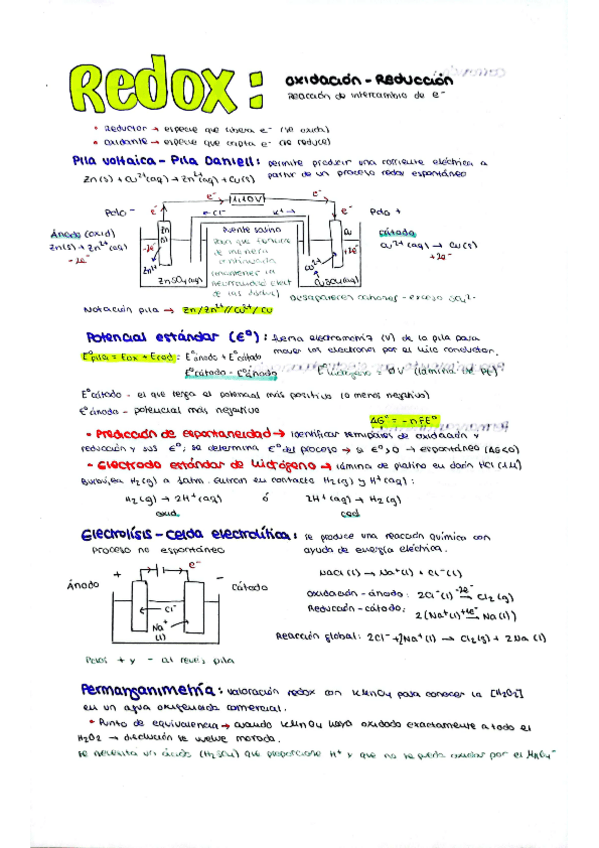 Redox: oxidación - Reducción
Reacción de intercambio de e⁻
• Reductor → especie que libera e⁻ (se oxida)
• Oxidante → especie que capta e⁻ (se reduce)
Pila voltaica - Pila Daniell: permite producir una corriente eléctrica a
Zn(s) + Cu²⁺(aq) → Zn²⁺(aq) + Cu(s) partir de un proceso redox espontáneo
e⁻ 1'10V e⁻
Polo - e⁻ ← Cl⁻ K⁺ → e⁻ Polo +
Ánodo (oxid) Zn (s) Puente salino Cu Cátodo
Zn(s) → Zn²⁺(aq) -2e⁻ +2e⁻ Cu²⁺(aq) → Cu(s)
- 2e⁻ +2e⁻
Zn²⁺ Cu²⁺
ZnSO₄(aq) CuSO₄(aq)
Desaparecen cationes - exceso SO₄²⁻
Notación pila → Zn/Zn²⁺//Cu²⁺/Cu
Potencial estándar (E°): fuerza electromotriz (V) de la pila para
E°pila = Eox + Ered : E°ánodo + E°cátodo mover los electrones por el hilo conductor.
E°cátodo - E°ánodo E°hidrógeno = 0V (lámina de Pt)
E°cátodo - el que tenga el potencial más positivo (o menos negativo)
E°ánodo - potencial más negativo
ΔG° = -nFE°
• Predicción de espontaneidad → identificar semipares de oxidación y
reducción y sus E°; se determina E° del proceso → si E° > 0 → espontáneo (ΔG<0)
• Electrodo estándar de hidrógeno → lámina de platino en HCl (1M)
Burbujea H₂(g) a 1atm. Entran en contacto H₂(g) y H⁺(aq):
H₂(g) → 2H⁺(aq) ó 2H⁺(aq) → H₂(g)
oxid. red.
Electrólisis - Celda electrolítica: se produce una reacción química con
Proceso no espontáneo ayuda de energía eléctrica.
+ - e⁻
Ánodo Cátodo
← Cl⁻
Na⁺ →
(l)
NaCl(l) → Na⁺(l) + Cl⁻(l)
Oxidación - ánodo: 2Cl⁻(l) -2e⁻→ Cl₂(g)
Reducción - cátodo: 2(Na⁺(l) +1e⁻→ Na(l))
Reacción global: 2Cl⁻ + 2Na⁺(l) → Cl₂(g) + 2Na(l)
Polos + y - al revés pila
Permanganimetría: valoración redox con KMnO₄ para conocer la [H₂O₂]
en un agua oxigenada comercial.
• Punto de equivalencia → cuando KMnO₄ haya oxidado exactamente a todo el
H₂O₂ → disolución se vuelve morada.
Se necesita un ácido (H₂SO₄) que proporcione H⁺ y que no se pueda oxidar por el MnO₄⁻